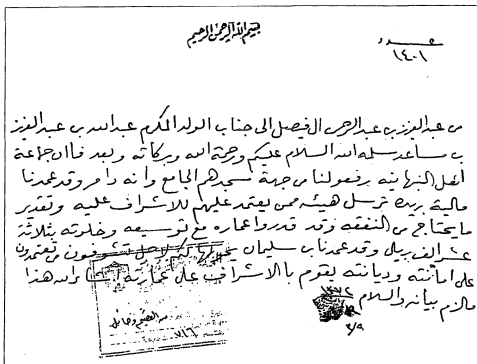 بسم الله الرحمن الرحيم
عدد
١٤٠١
من عبد العزيز بن عبد الرحمن ال فيصل الى جناب الولد المكرم عبد الله بن عبد العزيز
بن مساعد سلمه الله السلام عليكم ورحمة الله وبركاته وبعد فان جماعة
اهل النبهانيه رفعوا لنا من جهة مسجدهم الجامع وانه دامر وقد عمدنا
مالية بريده ترسل هيئه ممن يعتمد عليهم للاشراف عليه وتقدير
ما يحتاج من النفقه وقد قدروا عماره مع توسيعه وخلوته بثلاثة
عشر الف ريال وقد عمدنا بن سليمان لاجل تشوفون من تعتمدون
على امانته وديانته يقوم بالاشراف على عمارته هذا
ما لزم بيانه والسلام
١٣٧٢
٣/٩
القصيم وحائل
٧٨٦